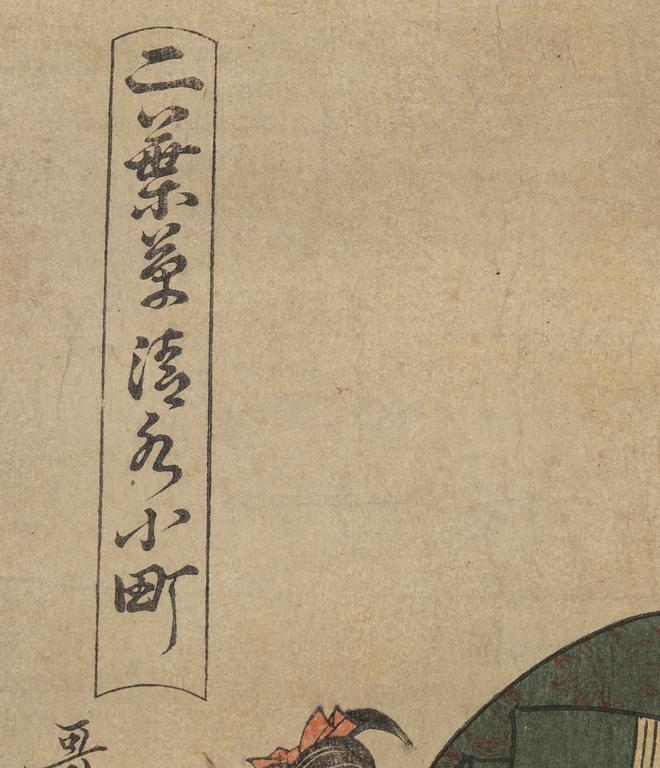 二葉草清水小町